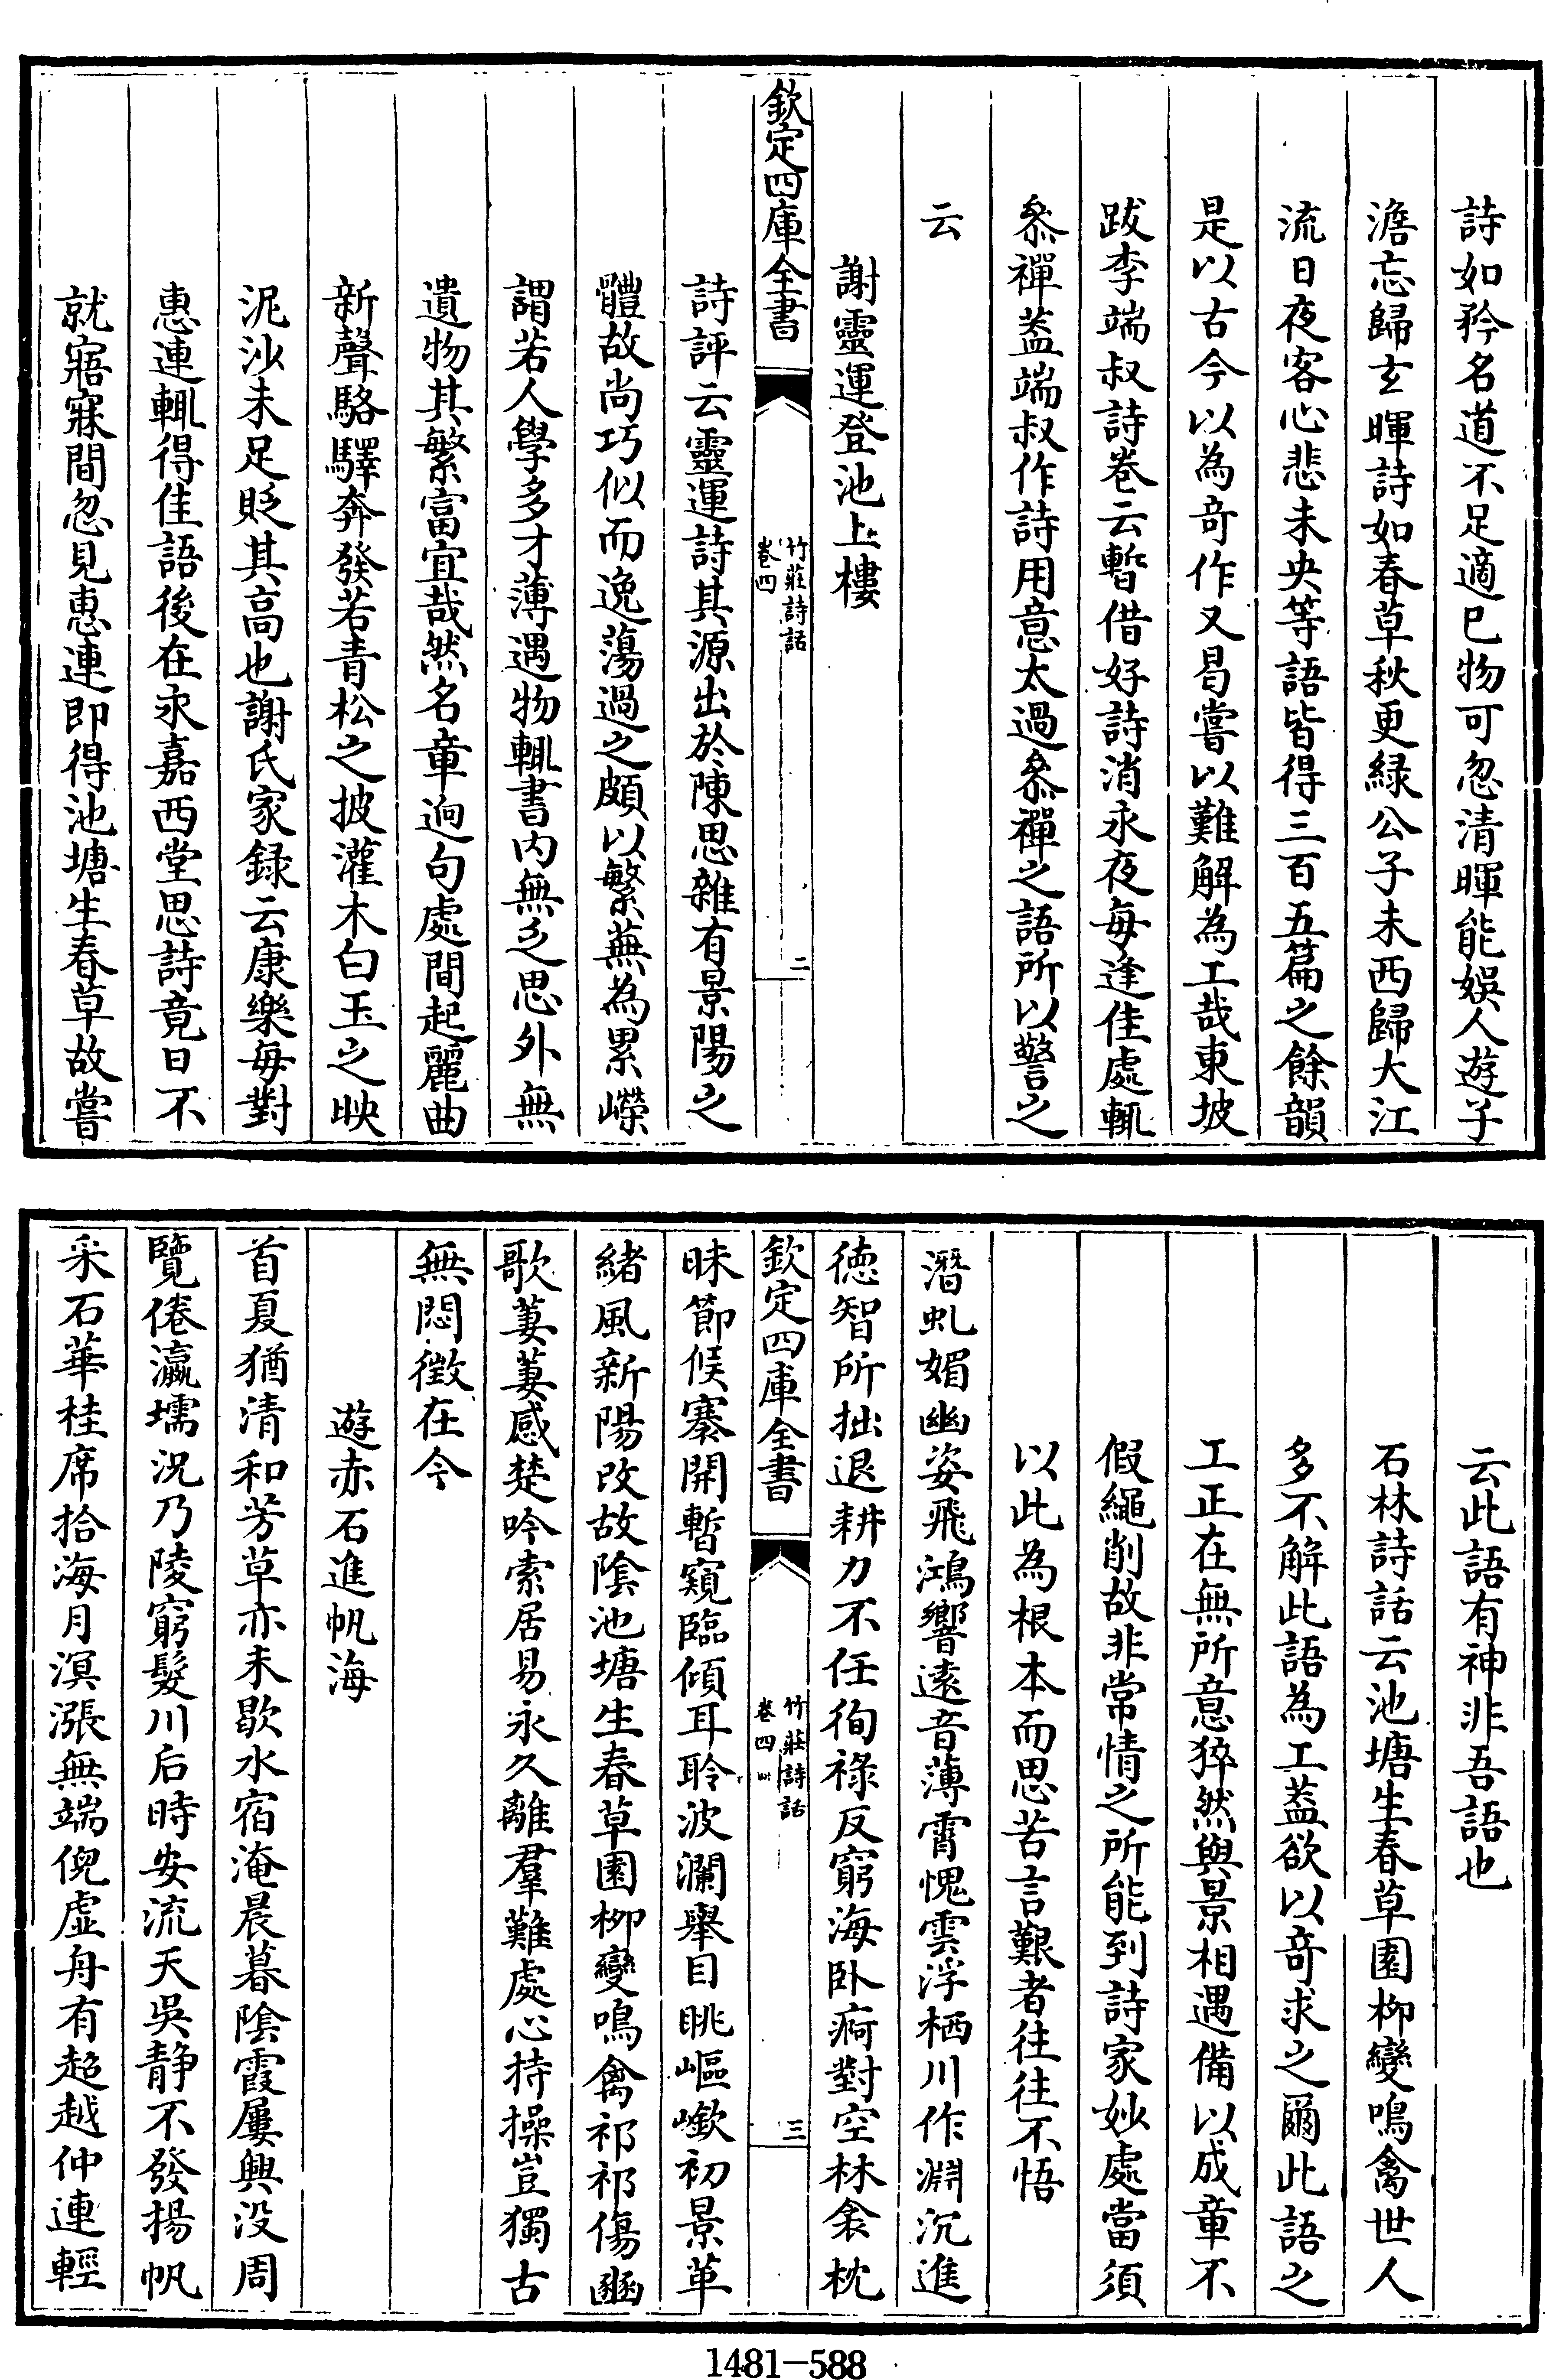 詩如矜名道不足適已物可忽清暉能娛人遊子
澹忘歸玄暉詩如春草秋更緑公子未西歸大江
流日夜客心悲未央等語皆得三百五篇之餘韻
是以古今以為竒作又曷嘗以難解為工哉東坡
跋李端叔詩巻云暫借好詩消永夜每逢佳處輒
叅禪葢端叔作詩用意太過叅禪之語所以警之
云
謝靈運登池上樓
欽定四庫全書
竹莊詩話
巻四
二
詩評云靈運詩其源出於陳思雜有景陽之
體故尚巧似而逸蕩過之頗以繁蕪為累嶸
謂若人學多才薄遇物輒書内無乏思外無
遺物其繁富宜哉然名章逈句處間起麗曲
新聲駱驛奔發若青松之披灌木白玉之映
泥沙未足貶其高也謝氏家録云康樂每對
惠連輒得佳語後在永嘉西堂思詩竟日不
就寤寐間忽見惠連即得池塘生春草故嘗
云此語有神非吾語也
石林詩話云池塘生春草園栁變鳴禽世人
多不解此語為工葢欲以竒求之爾此語之
工正在無所意猝然與景相遇備以成章不
假繩削故非常情之所能到詩家妙處當須
以此為根本而思苦言艱者往往不悟
潛虬媚幽姿飛鴻響逺音薄霄愧雲浮栖川作淵沉進
徳智所拙退耕力不任徇祿反窮海卧痾對空林衾枕
欽定四庫全書
竹莊詩話
巻四
三
昧節候褰開暫窺臨傾耳聆波瀾舉目眺嶇嶔初景革
緒風新陽改故陰池塘生春草園栁變鳴禽祁祁傷豳
歌萋萋感楚吟索居易永久離羣難處心持操豈獨古
無悶徴在今
遊赤石進帆海
首夏猶清和芳草亦未歇水宿淹晨暮陰霞屢興没周
覽倦瀛壖況乃陵窮髪川后時安流天吳静不發揚帆
采石華桂席拾海月溟漲無端倪虚舟有超越仲連輕
1481-588